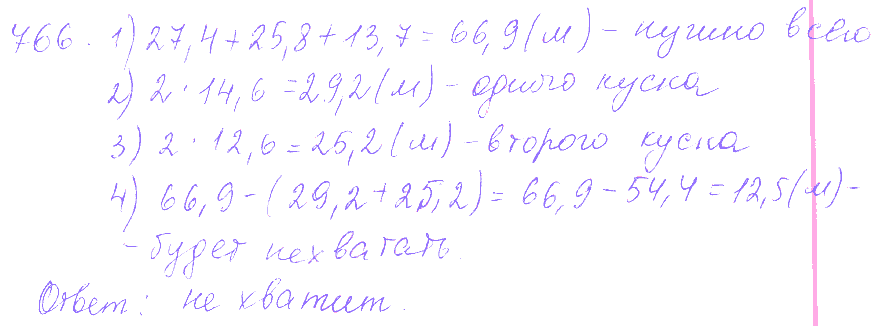 766. 1) 27,4+25,8+13,7= 66,9(м) - нужно всего
2) 2·14,6 =29,2(м) - одного куска
3) 2·12,6=25,2(м) - второго куска
4) 66,9-(29,2+25,2)= 66,9-54,4=12,5(м)-
- будет нехватать.
Ответ: не хватит.